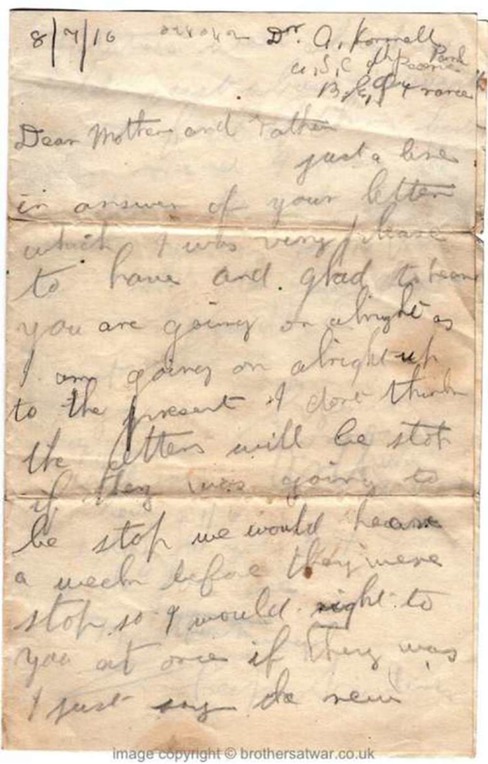 8/7/16 Dr. A.
A, S, C
B, E, F France
Dear Mother and Father
just a line
in answer of your letter
which I was very please
to have and glad to hear
you are going on alright as
I am going on alright up
to the present I dont think
the letters will be stop
if they was going to
be stop we would hear
a week before they were
stop so I would right to
you at once if they was
I just say
image copyright © brothersatwar.co.uk